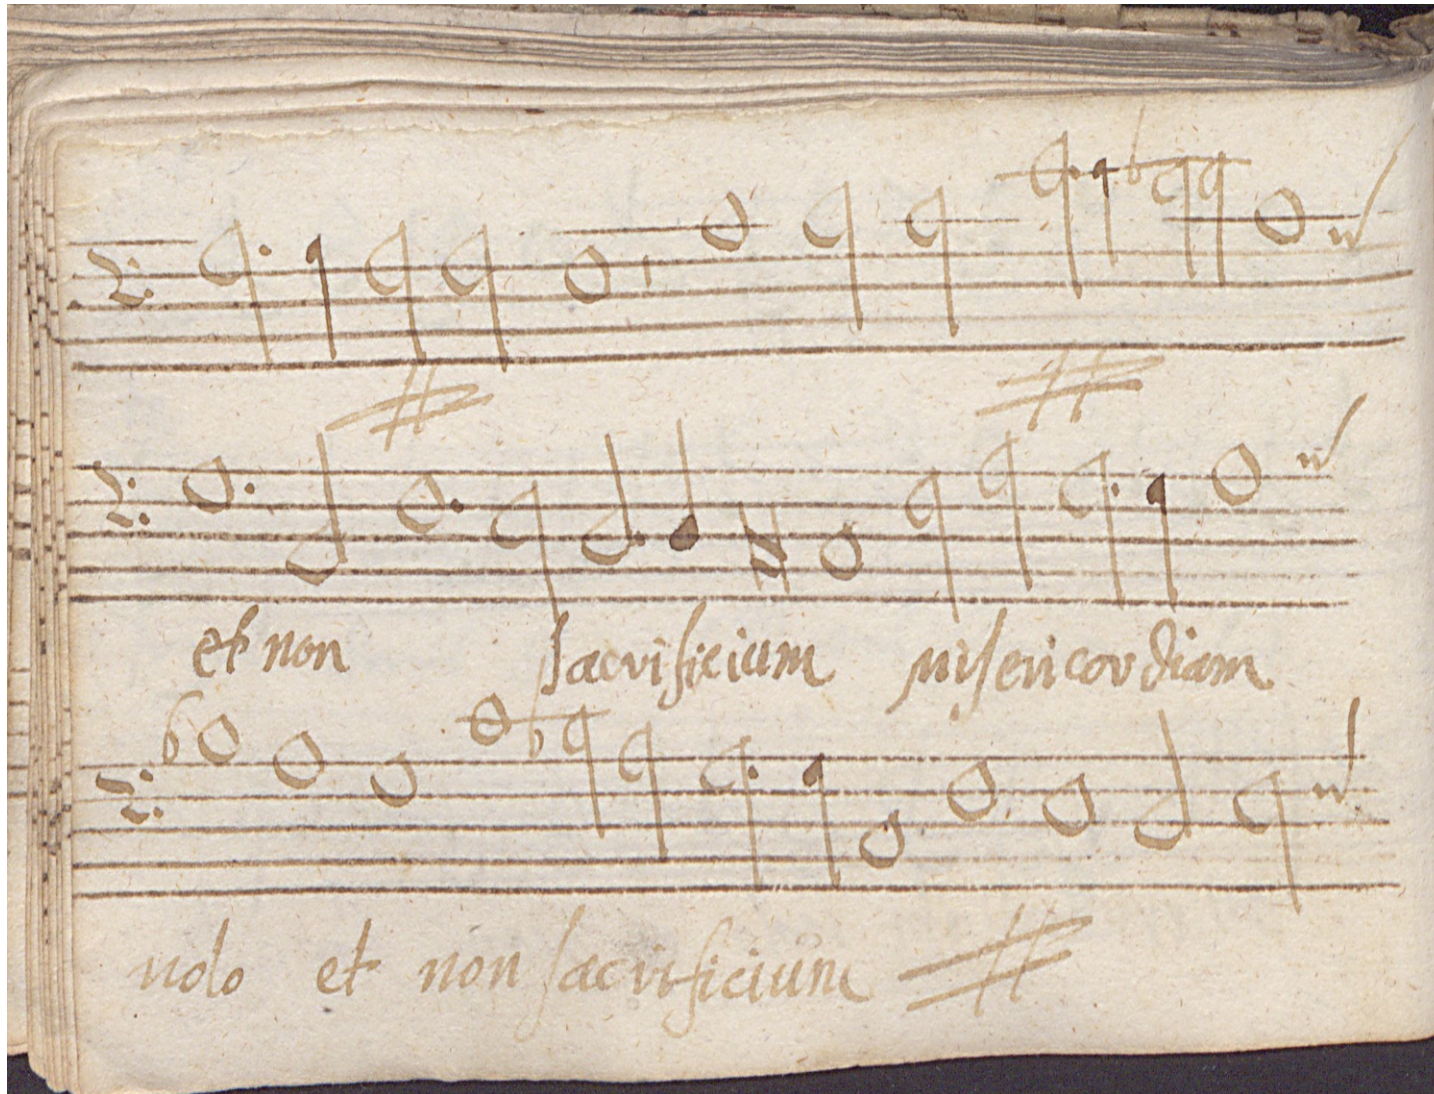 et non sacrificium misericordiam
volo et non sacrificiũm